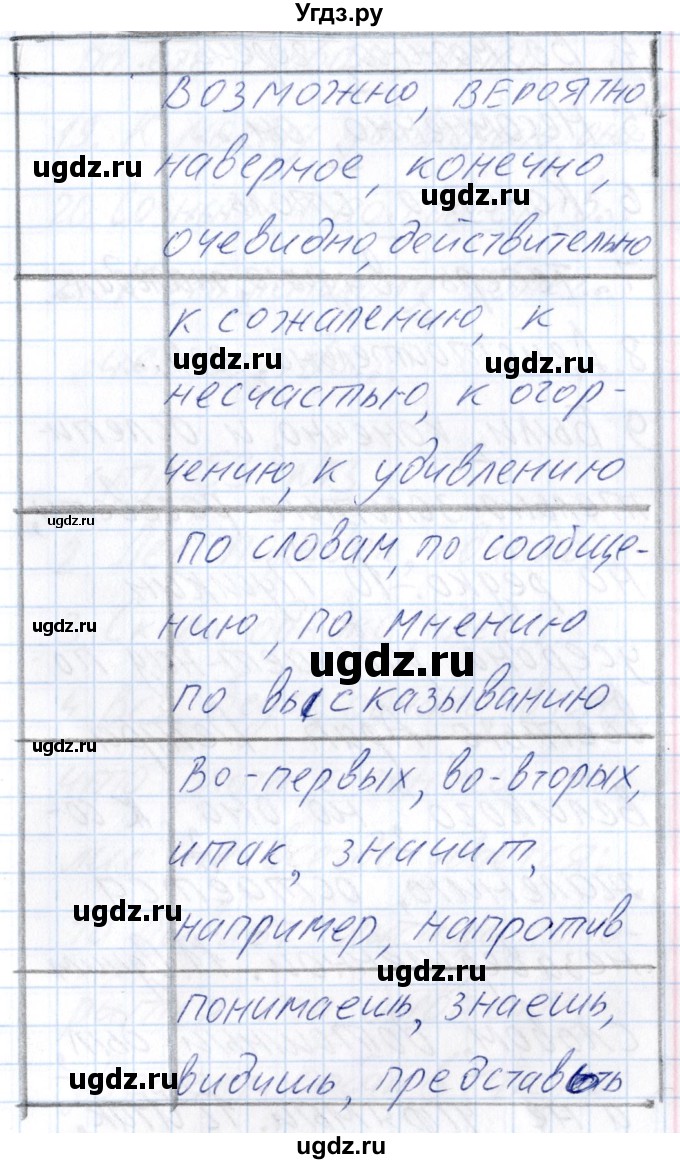 Угдз.ру
возможно, вероятно
ugdz.ru
наверное, конечно,
ugdz.ru
очевидно, действительно
к сожалению, к
ugdz.ru
ugdz.ru
несчастью, к огор-
чению, к удивлению
ugdz.ru
по словам, по сообще-
ugdz.ru
нию, по мнению
ugdz.ru
по высказыванию
ugdz.ru
Во-первых, во-вторых,
итак, значит,
ugdz.ru
например, напротив
ugdz.ru
понимаешь, знаешь,
ugdz.ru
видишь, представь
ugdz.ru